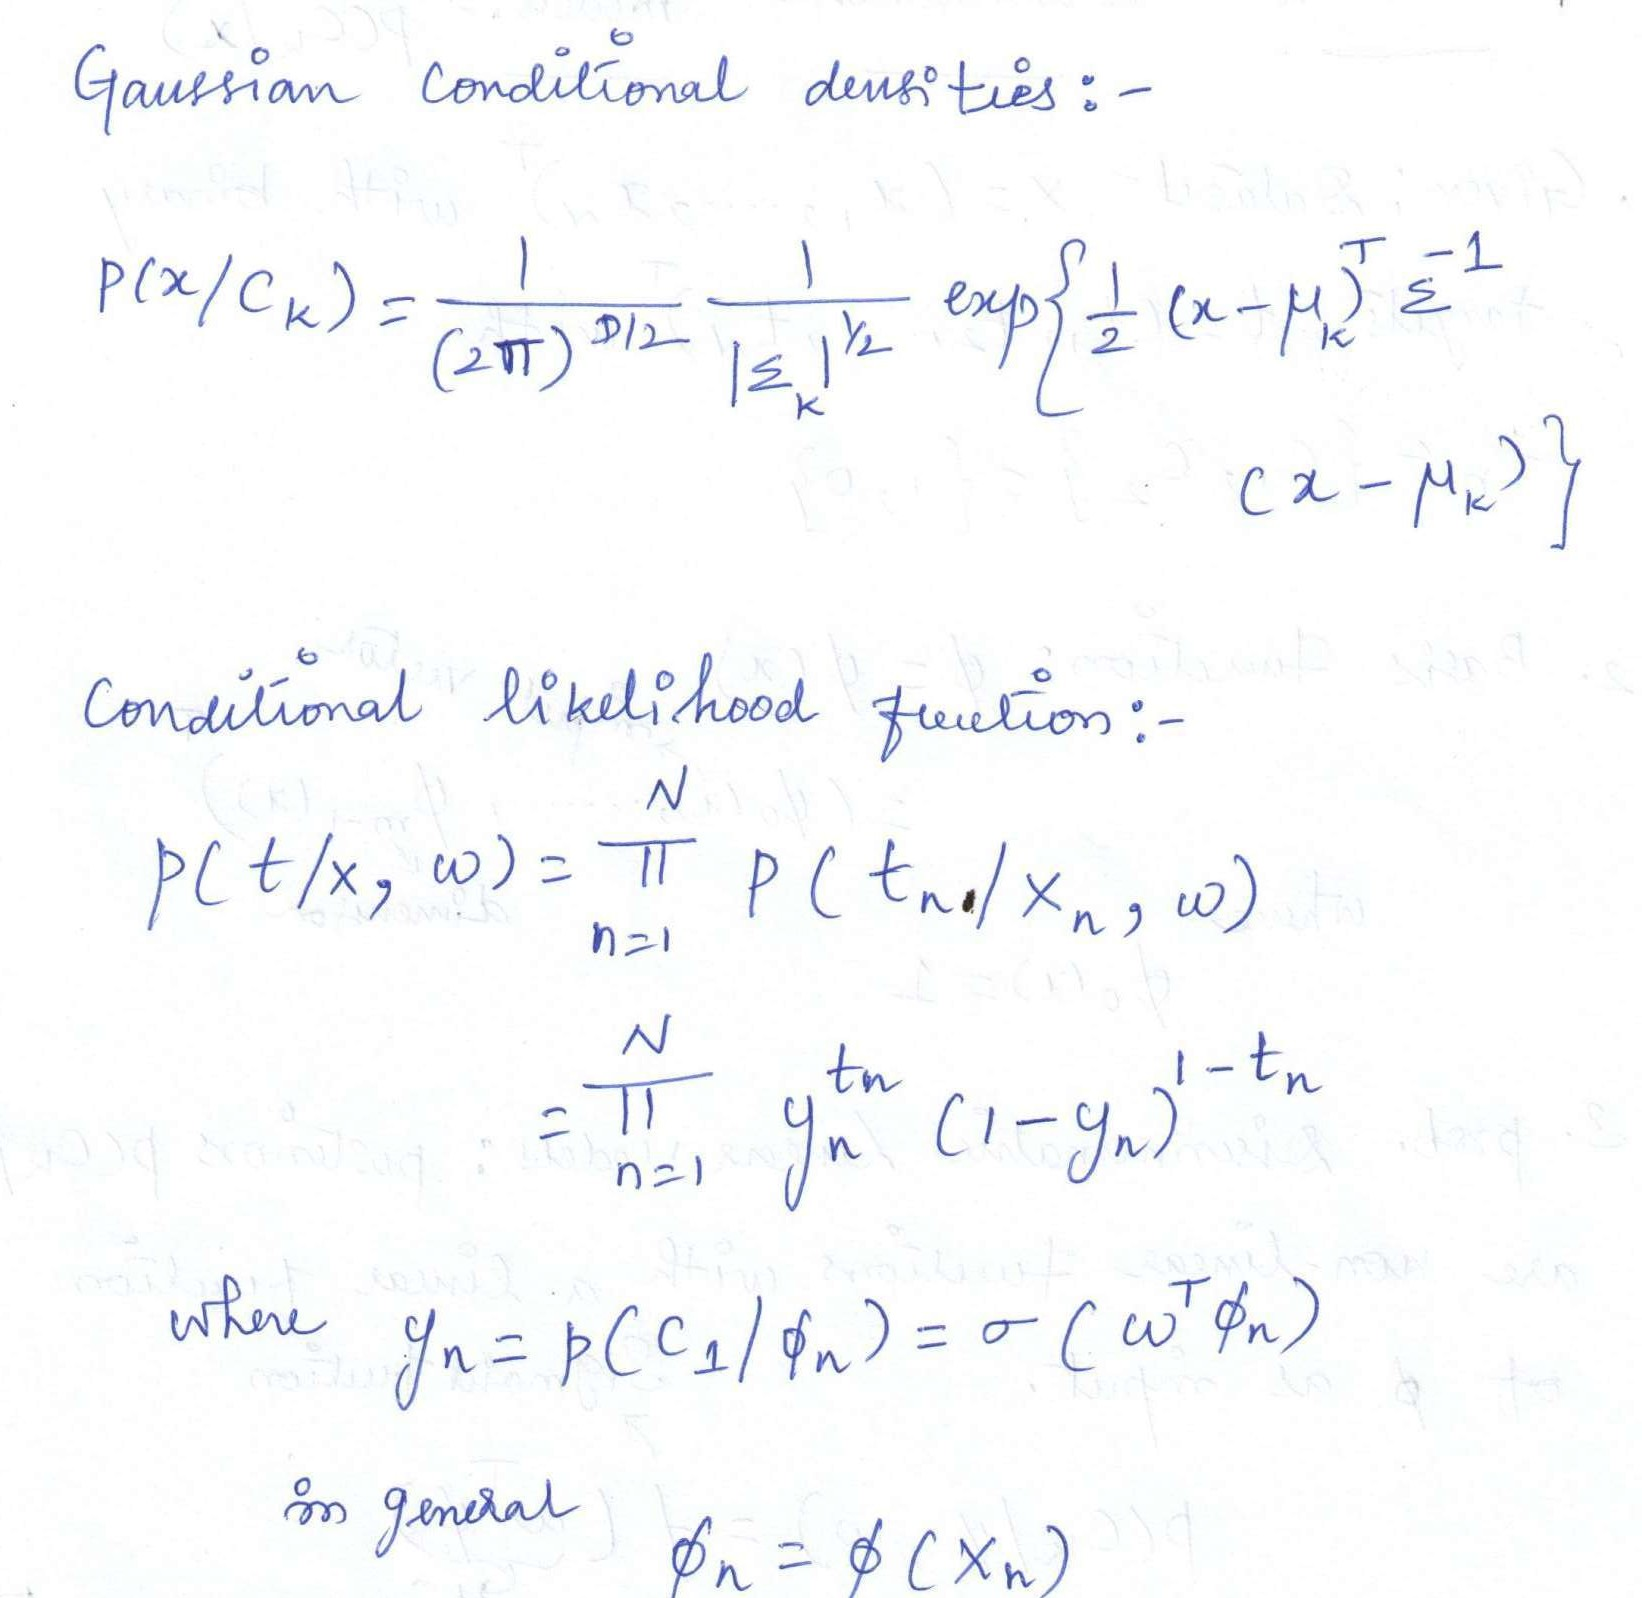 Gaussian Conditional densities :-
P(x/C_k) = 1/(2π)^{D/2} 1/|Σ_k|^{1/2} exp{ 1/2 (x-μ_k)^T Σ^{-1}
(x-μ_k) }
Conditional likelihood function :-
p(t/x, w) = ∏_{n=1}^{N} P(t_n/x_n, w)
= ∏_{n=1}^{N} y_n^{t_n} (1-y_n)^{1-t_n}
where y_n = p(C_1/φ_n) = σ(w^T φ_n)
in general φ_n = φ(x_n)